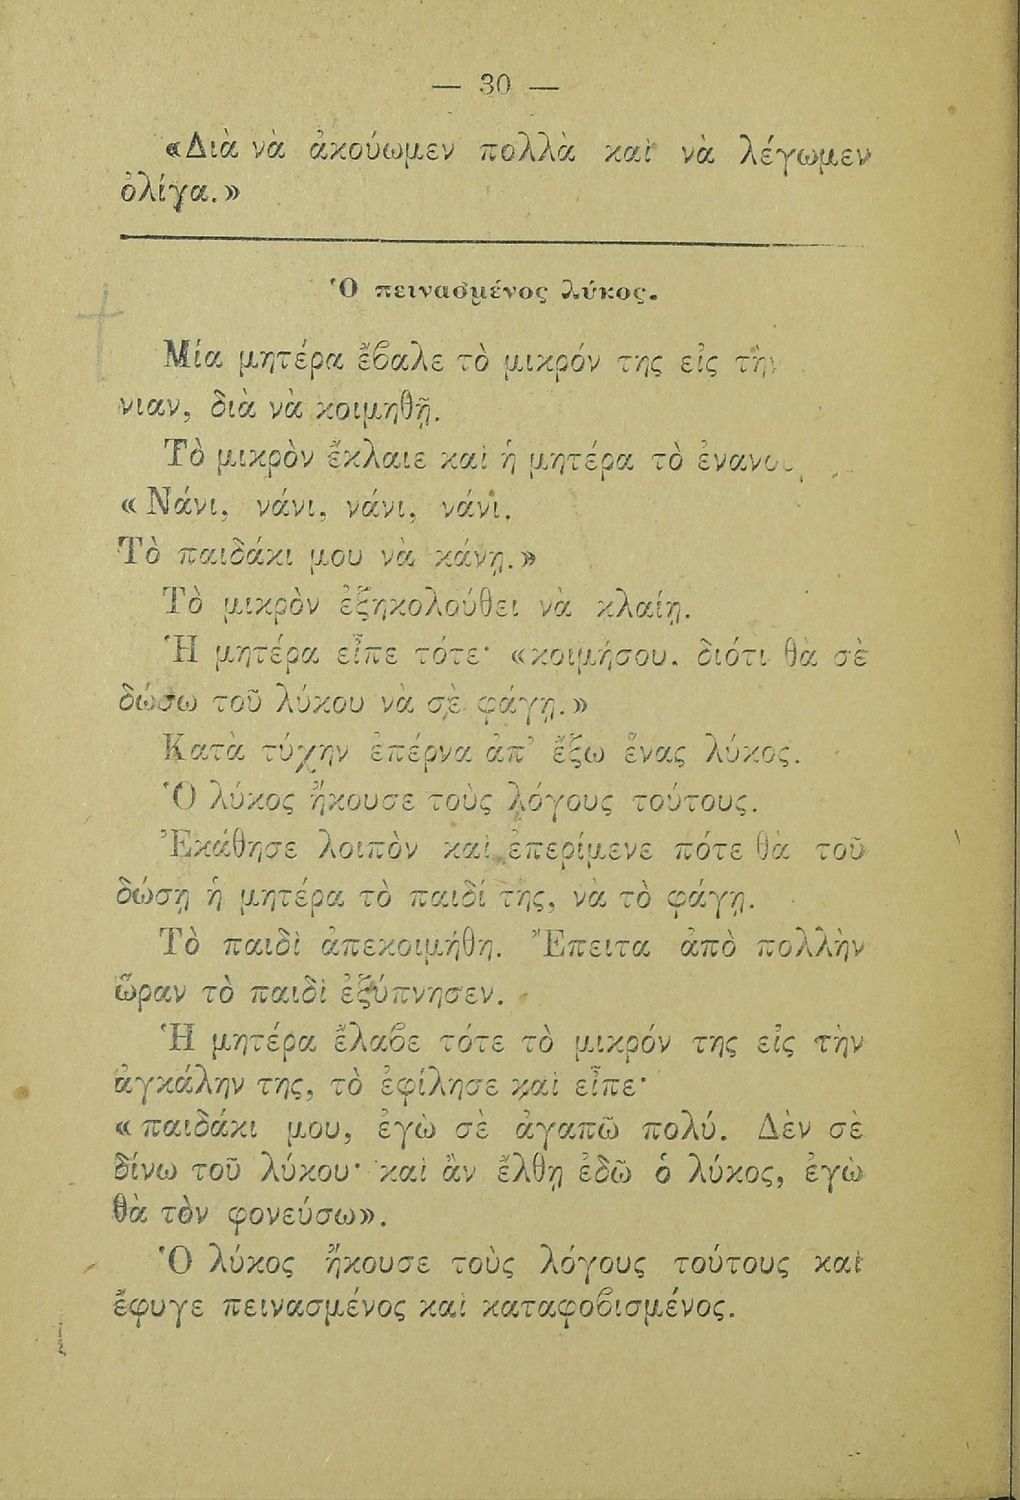 — 30 —
«Διὰ νὰ ἀκούωμεν πολλὰ καὶ νὰ λέγωμεν
ὀλίγα.»
Ὁ πεινασμένος λύκος.
Μία μητέρα ἔβαλε τὸ μικρόν της εἰς τὴν
νιαν, διὰ νὰ κοιμηθῇ.
Τὸ μικρὸν ἔκλαιε καὶ ἡ μητέρα τὸ
«Νάνι, νάνι, νάνι, νάνι,
Τὸ παιδάκι μου νὰ κάνῃ.»
Τὸ μικρὸν ἐξηκολούθει νὰ κλαίῃ.
Ἡ μητέρα εἶπε τότε· «κοιμήσου, διότι θὰ σὲ
δώσω τοῦ λύκου νὰ σὲ φάγῃ.»
Κατὰ τύχην ἐπέρνα ἀπ' ἔξω ἕνας λύκος.
Ὁ λύκος ἤκουσε τοὺς λόγους τούτους.
Ἐκάθησε λοιπὸν καὶ ἐπερίμενε πότε θὰ τοῦ
δώσῃ ἡ μητέρα τὸ παιδί της, νὰ τὸ φάγῃ.
Τὸ παιδὶ ἀπεκοιμήθη. Ἔπειτα ἀπὸ πολλὴν
ὥραν τὸ παιδὶ ἐξύπνησεν.
Ἡ μητέρα ἔλαβε τότε τὸ μικρόν της εἰς τὴν
ἀγκάλην της, τὸ ἐφίλησε καὶ εἶπε·
«παιδάκι μου, ἐγὼ σὲ ἀγαπῶ πολύ. Δὲν σὲ
δίνω τοῦ λύκου· καὶ ἂν ἔλθῃ ἐδῶ ὁ λύκος, ἐγὼ
θὰ τὸν φονεύσω».
Ὁ λύκος ἤκουσε τοὺς λόγους τούτους καὶ
ἔφυγε πεινασμένος καὶ καταφοβισμένος.